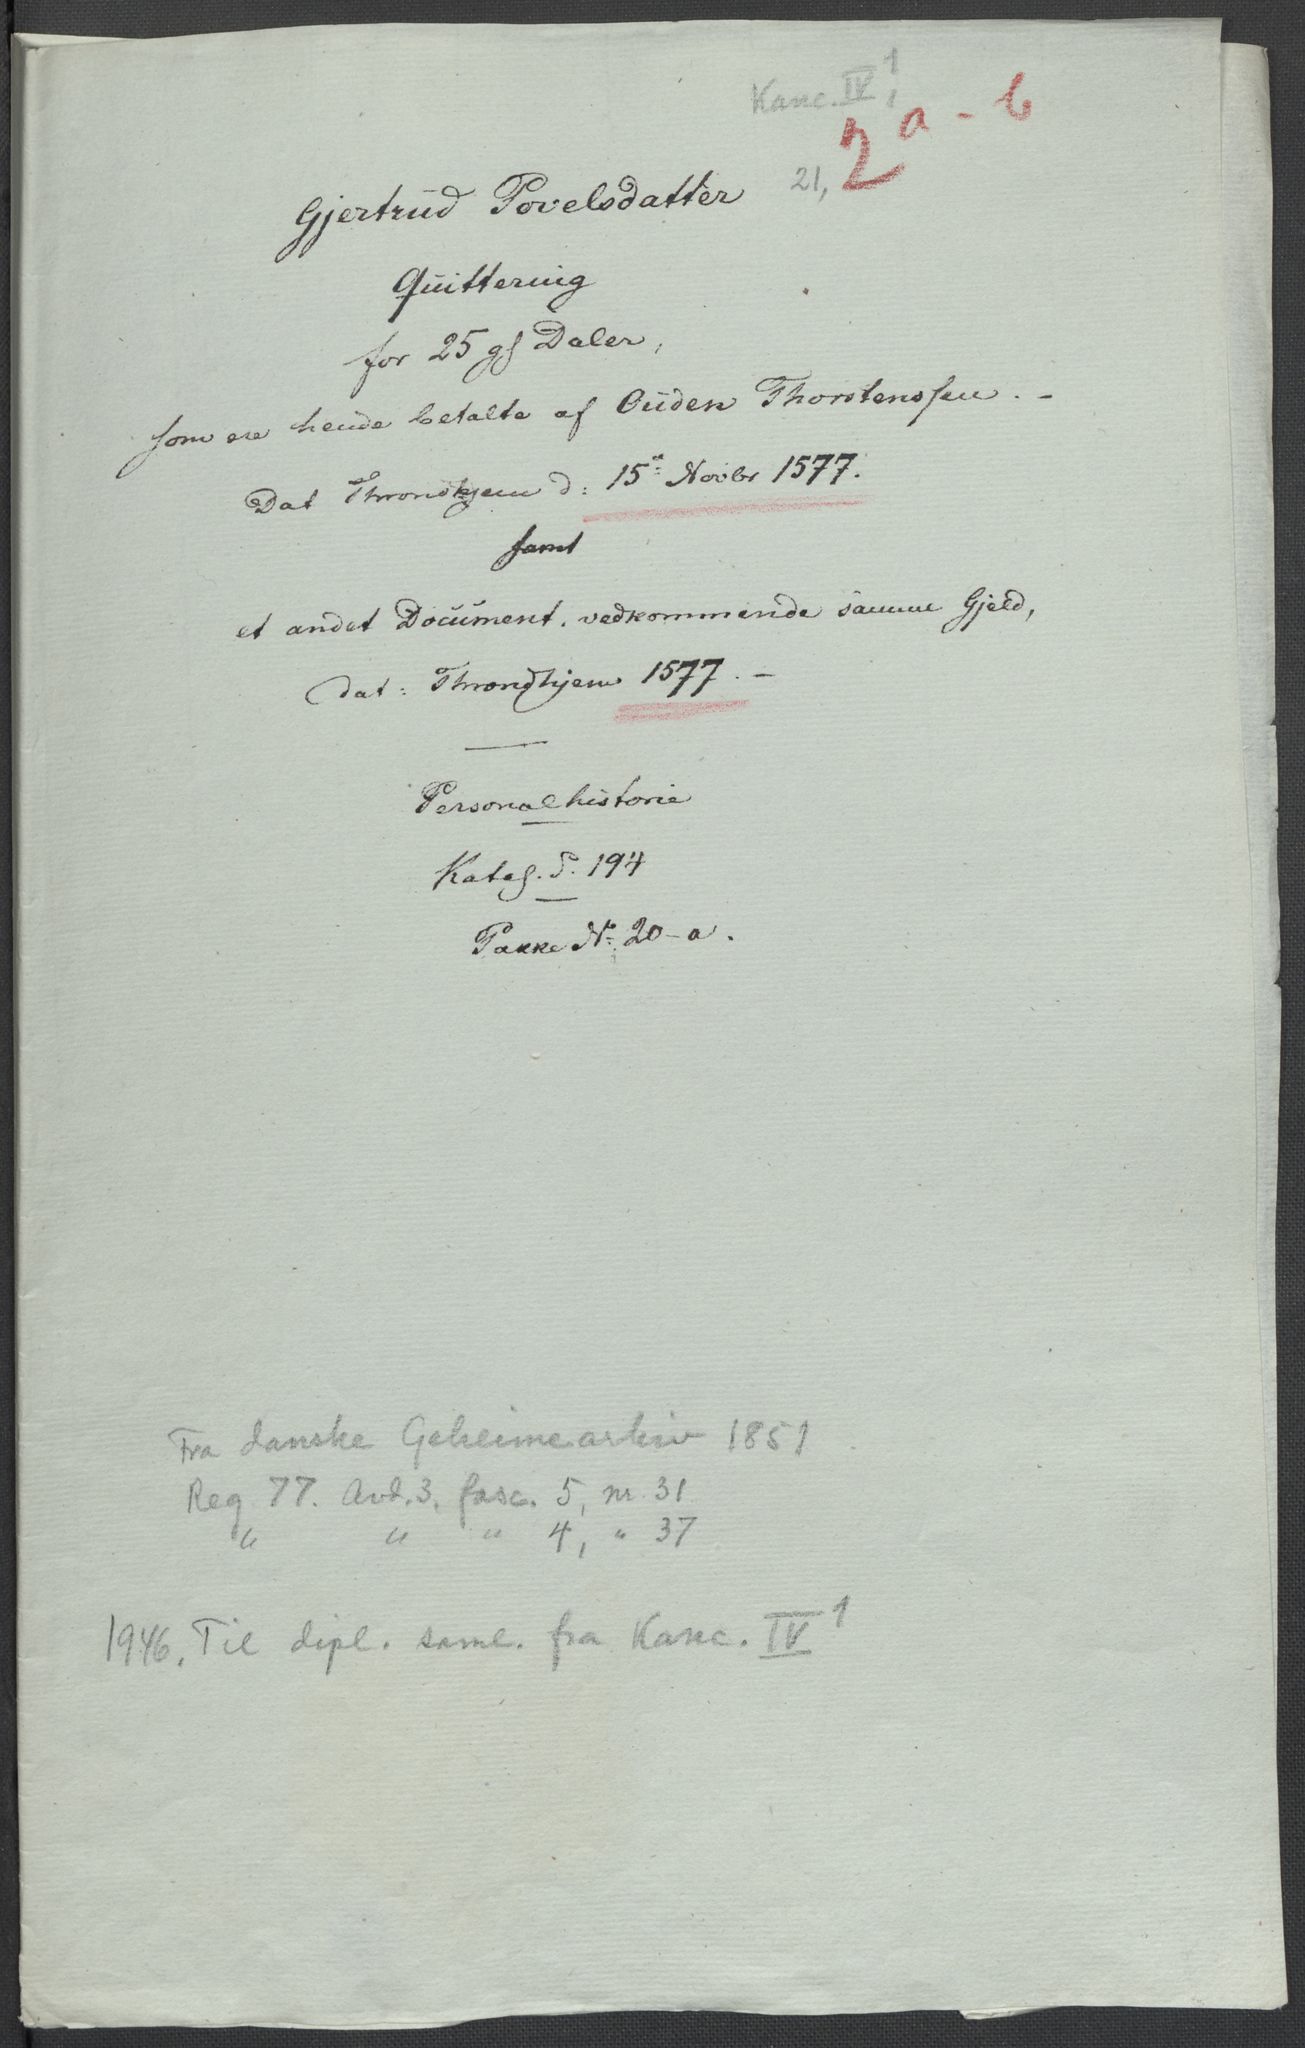 Kanc. IV 1
21, 2 a - b
Gjertrud Povelsdatter
Quittering
for 25 gl Daler,
som ere hende betalte af Ouden Thorstenssen. -
Dat Throndhjem d: 15de Novbr 1577.
samt
et andet Document, vedkommende samme Gjeld,
dat: Throndhjem 1577. -
Personalhistorie
Katal. S. 194
Pakke No 20-a.
Fra danske Geheimearkiv 1851
Reg 77. Avd. 3, fasc. 5, nr 31
" " " 4, " 37
1946. Til dipl. saml. fra Kanc. IV 1